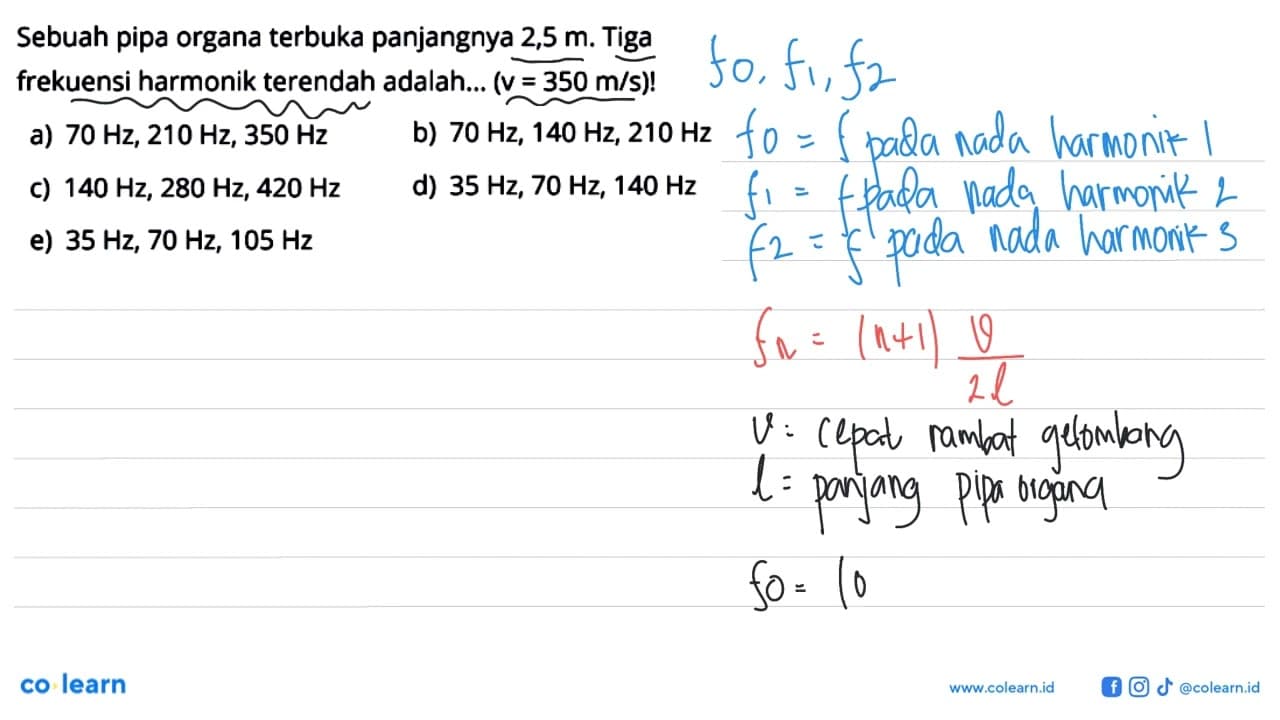 Sebuah pipa organa terbuka panjangnya 2,5 m. Tiga
frekuensi harmonik terendah adalah... (v = 350 m/s)!
a) 70 Hz, 210 Hz, 350 Hz
b) 70 Hz, 140 Hz, 210 Hz
c) 140 Hz, 280 Hz, 420 Hz
d) 35 Hz, 70 Hz, 140 Hz
e) 35 Hz, 70 Hz, 105 Hz
f0, f1, f2
f0 = f pada nada harmonik 1
f1 = f pada nada harmonik 2
f2 = f pada nada harmonik 3
fn = (n+1) v
2l
v = cepat rambat gelombang
l = panjang pipa organa
f0 = (0
co learn
www.colearn.id
@colearn.id